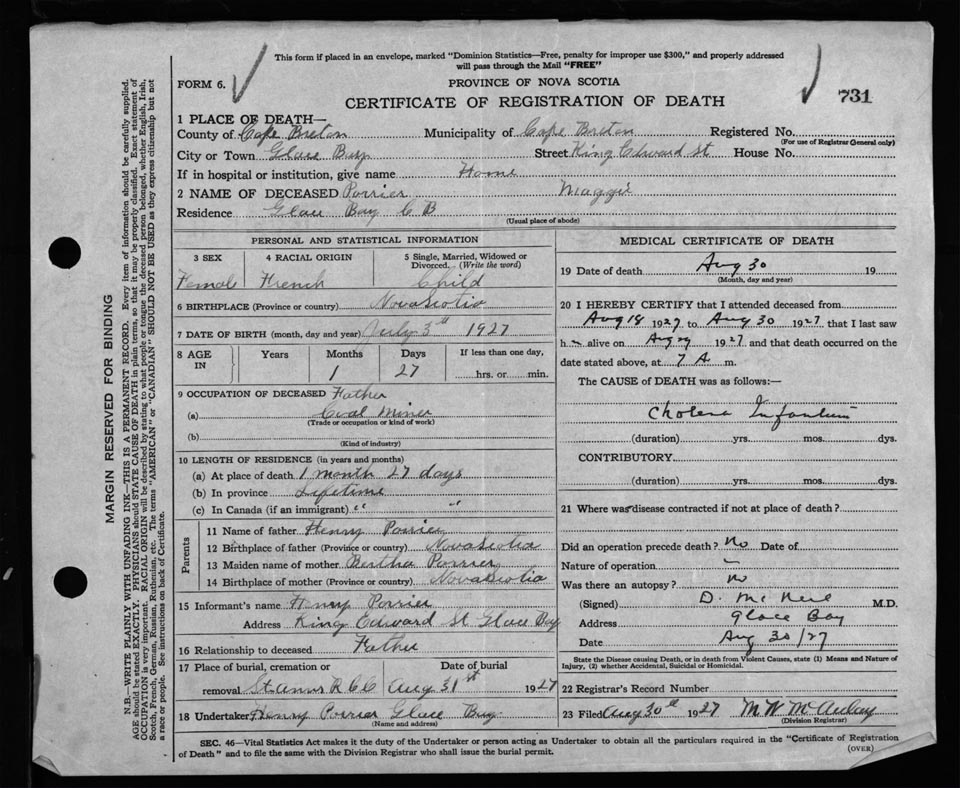 This form if placed in an envelope, marked "Dominion Statistics—Free, penalty for improper use $300," and properly addressed
will pass through the Mail "FREE"
FORM 6.
PROVINCE OF NOVA SCOTIA
731
CERTIFICATE OF REGISTRATION OF DEATH
1 PLACE OF DEATH—
County of Cape Breton Municipality of Cape Breton Registered No.
(For use of Registrar General only)
City or Town Glace Bay Street King Edward St House No.
If in hospital or institution, give name Home
2 NAME OF DECEASED Porrier Maggie
Residence Glace Bay C B
(Usual place of abode)
PERSONAL AND STATISTICAL INFORMATION
3 SEX 4 RACIAL ORIGIN 5 Single, Married, Widowed or
Divorced. (Write the word)
Female French Child
6 BIRTHPLACE (Province or country) Nova Scotia
7 DATE OF BIRTH (month, day and year) July 3rd 1927
8 AGE IN Years Months Days If less than one day,
1 27 hrs. or min.
9 OCCUPATION OF DECEASED Father
(a) Coal Miner
(Trade or occupation or kind of work)
(b)
(Kind of industry)
10 LENGTH OF RESIDENCE (in years and months)
(a) At place of death 1 month 27 days
(b) In province Lifetime
(c) In Canada (if an immigrant) " "
Parents
11 Name of father Henry Porrier
12 Birthplace of father (Province or country) Nova Scotia
13 Maiden name of mother Bertha Porrier
14 Birthplace of mother (Province or country) Nova Scotia
15 Informant's name Henry Porrier
Address King Edward St Glace Bay
16 Relationship to deceased Father
17 Place of burial, cremation or Date of burial
removal St anns R C C Aug 31st 1927
18 Undertaker Henry Porrier Glace Bay
(Name and address)
MEDICAL CERTIFICATE OF DEATH
19 Date of death Aug 30 19
(Month, day and year)
20 I HEREBY CERTIFY that I attended deceased from
Aug 18 1927 to Aug 30 1927 that I last saw
h alive on Aug 29 1927 and that death occurred on the
date stated above, at 7 A. m.
The CAUSE OF DEATH was as follows:—
Cholera Infantum
(duration) yrs. mos. dys.
CONTRIBUTORY
(duration) yrs. mos. dys.
21 Where was disease contracted if not at place of death?
Did an operation precede death? No Date of
Nature of operation –
Was there an autopsy? No
(Signed) D. McNeil M.D.
Address Glace Bay
Date Aug 30/27
State the Disease causing Death, or in death from Violent Causes, state (1) Means and Nature of
Injury, (2) whether Accidental, Suicidal or Homicidal.
22 Registrar's Record Number
23 Filed Aug 30th 1927 M W McAulay
(Division Registrar)
SEC. 46—Vital Statistics Act makes it the duty of the Undertaker or person acting as Undertaker to obtain all the particulars required in the "Certificate of Registration
of Death" and to file the same with the Division Registrar who shall issue the burial permit.
(OVER)
MARGIN RESERVED FOR BINDING
N.B.—WRITE PLAINLY WITH UNFADING INK—THIS IS A PERMANENT RECORD. Every item of information should be carefully supplied.
AGE should be stated EXACTLY. PHYSICIANS should STATE CAUSE OF DEATH in plain terms, so that it may be properly classified. Exact statement of
OCCUPATION is very important. RACIAL ORIGIN will be described by stating to what people or tongue the deceased person belonged, whether English, Irish,
Scotch, French, German, Russian, Ruthenian, etc. The terms "AMERICAN" or "CANADIAN" SHOULD NOT BE USED as they express citizenship but not
a race or people. See instructions on back of Certificate.